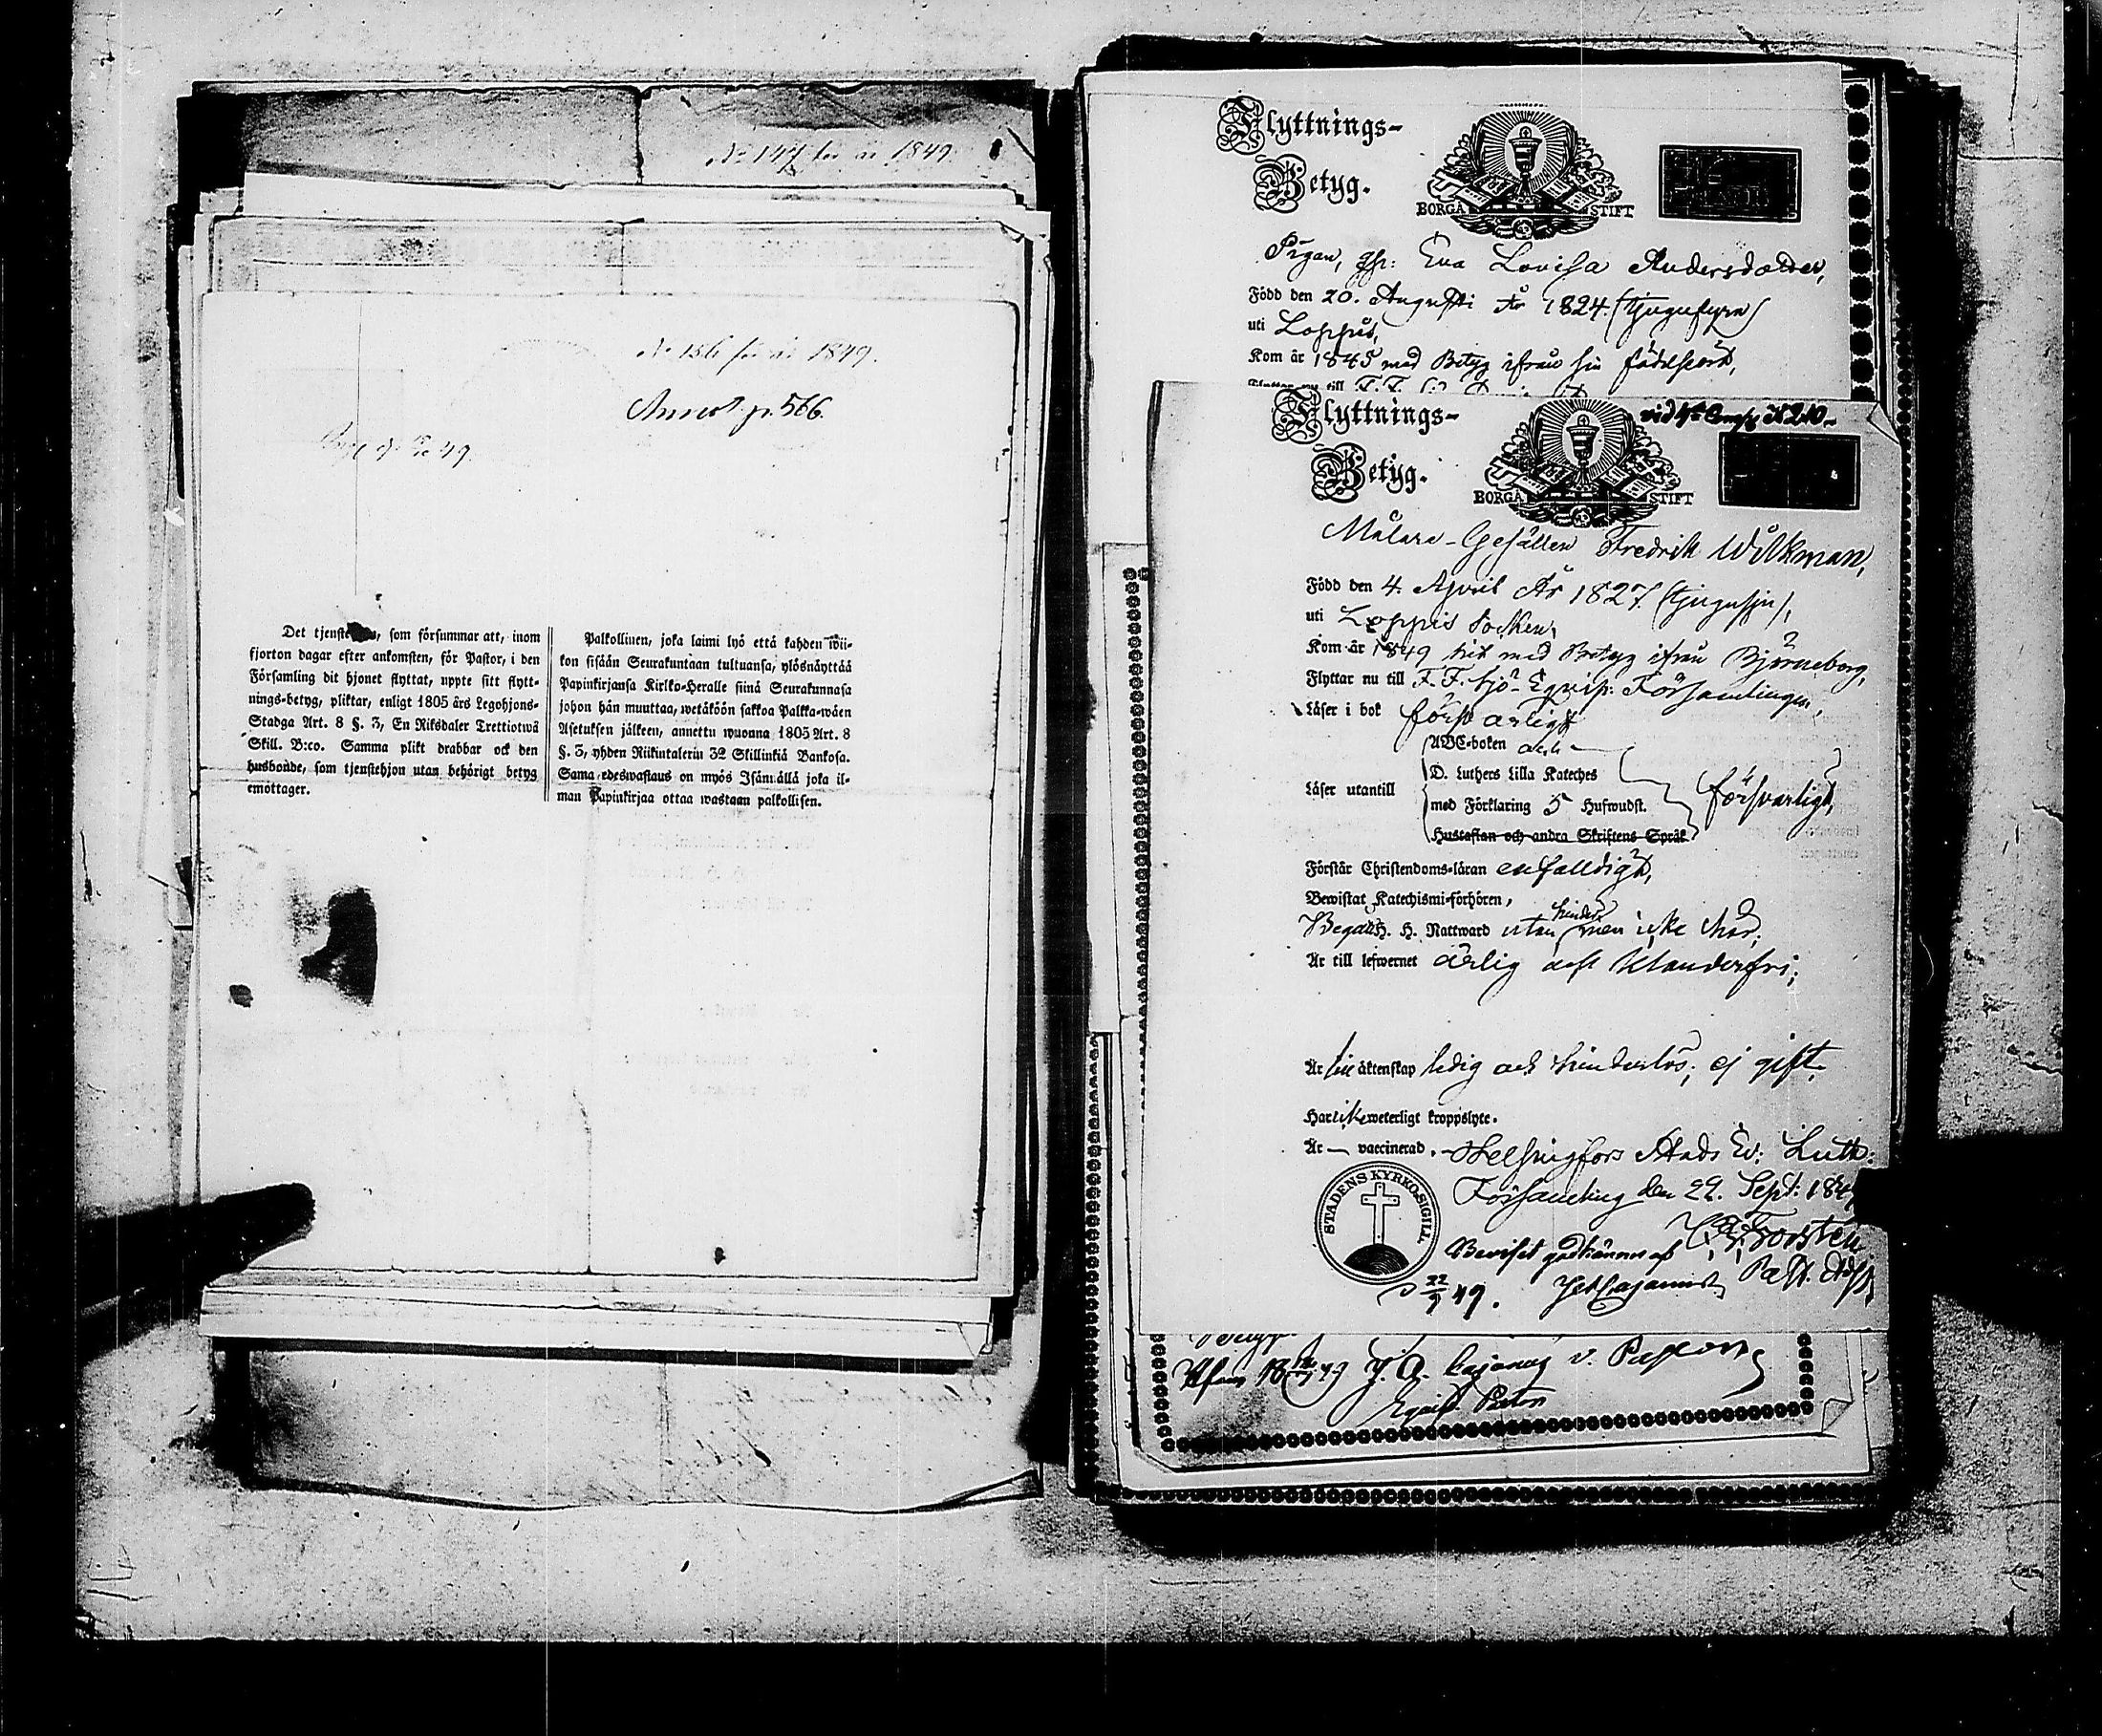 No 147 för år 1849.
No 156 för år 1849.
Annot. p. 566.
Det tjenstehjon, som försummar att, inom
fjorton dagar efter ankomsten, för Pastor, i den
Församling dit hjonet flyttat, uppte sitt flytt-
nings-betyg, pliktar, enligt 1805 års Legohjons-
Stadga Art. 8 §. 3, En Riksdaler Trettiotwå
Skill. B:co. Samma plikt drabbar ock den
husbonde, som tjenstehjon utan behörigt betyg
emottager.
Palkollinen, joka laimi lyö että kahden wii-
kon sisään Seurakuntaan tultuansa, ylösnäyttää
Papinkirjansa Kirkko-Heralle siinä Seurakunnasa
johon hän muuttaa, wetäköön sakkoa Palkka-wäen
Asetuksen jälkeen, annettu wuonna 1805 Art. 8
§. 3, yhden Riikintalerin 32 Skillinkiä Bankosa.
Sama edeswastaus on myös Isännällä joka il-
man Papinkirjaa ottaa wastaan palkollisen.
Flyttnings-
Betyg.
BORGÅ STIFT
Pigan, Eva Lovisa Andersdotter,
Född den 20. Augusti År 1824. (tjugufyra)
uti Loppis,
Kom år 1845 med Betyg ifrån sin födelseort,
Flyttar nu till F. F.
Flyttnings-
Betyg.
BORGÅ STIFT
Målare-Gesällen Fredrik Wilkman,
Född den 4. April År 1827. (tjugusju),
uti Loppis Socken,
Kom år 1849 hit med Betyg ifrån Björneborg,
Flyttar nu till F. F. Sjö-Equip: Församlingen,
Läser i bok försvarligt
Läser utantill
ABC-boken och
D. Luthers Lilla Kateches
med Förklaring 5 Hufwudst.
Hustaflan och andra Skriftens Språk
försvarligt,
Förstår Christendoms-läran enfalldigt,
Bewistat Katechismi-förhören,
Begått H. H. Nattward utan hinder men icke här;
Är till lefwernet ärlig och klanderfri;
Är till äktenskap ledig och hinderlös; ej gift.
Har icke weterligt kroppslyte.
Är — vaccinerad. Helsingfors Stads Ev: Luth:
Församling den 22. Sept: 1849
STADENS KYRKO-SIGILL
Forsten
Beviset godkännes af
Past. Adj.
22/9 49.
J. A. Cajanus v. Pastor
Equip. Pastor